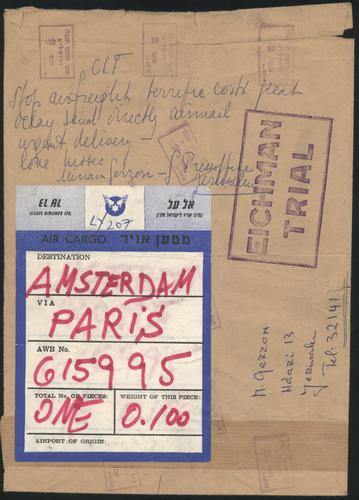 CLT
Stop airfreight terrific costs great
delay send directly airmail
urgent delivery -
love kisses
Miriam Garzon - Pressoffice
Jerusalem
EICHMAN
TRIAL
EL AL
ISRAEL AIRLINES LTD.
אל על
LY207
AIR CARGO מטען אויר
DESTINATION
AMSTERDAM
VIA
PARIS
AWB No.
615995
TOTAL No. OF PIECES:
ONE
WEIGHT OF THIS PIECE:
0.100
AIRPORT OF ORIGIN:
M. Garzon
Jerusalem
Tel: 32141